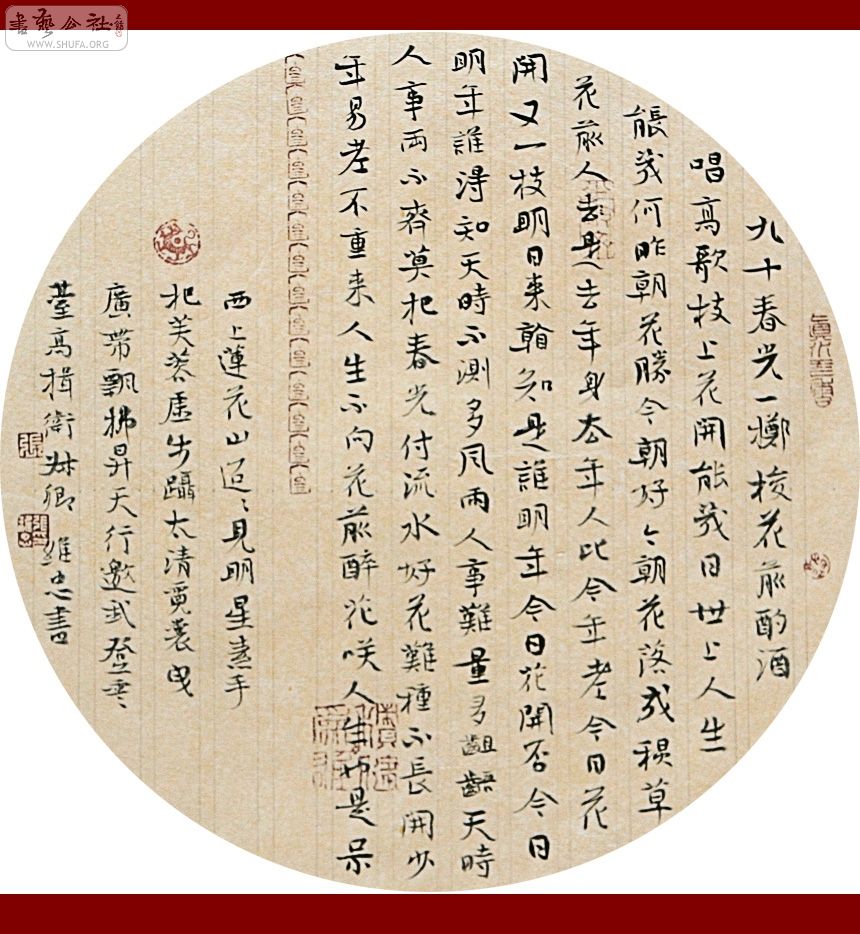 書藝公社
WWW.SHUFA.ORG
九十春光一擲梭花前酌酒
唱高歌枝上花開能幾日世上人生
能幾何昨朝花勝今朝好今朝花落成草
花前人去是去年身去年人比今年老今日花
開又一枝明日来看知是誰明年今日花開否今日
明年誰得知天時不測多風雨人事難量多齟齬天時
人事兩不齊莫把春光付流水好花難種不長開少
年易老不重来人生不向花前醉花咲人生也是呆
西上蓮花山迢〻見明星素手
把芙蓉虛步躡太清霓裳曳
廣帶飄拂昇天行邀我登雲
臺高揖衛叔卿維忠書